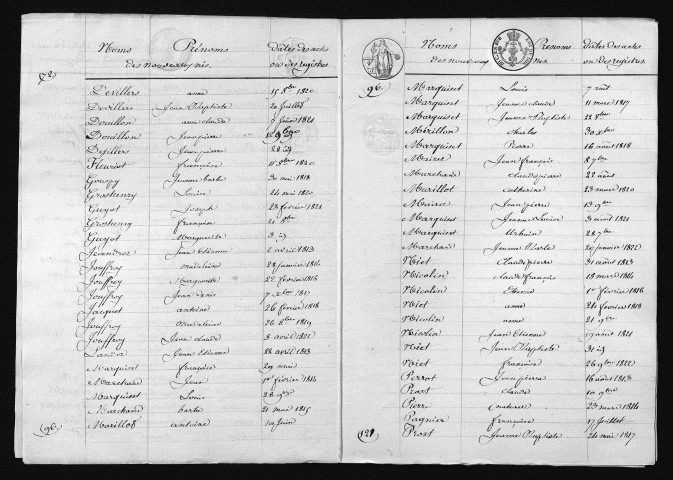 Noms Prénoms dates des actes
des nouveaux nés. ou des registres
72.
Devillers anne 15 8bre 1820
Devillers Jean Baptiste 20 Juillet
Douillon anne claude 1821
Douillon Jean pierre
Devillers Jean pierre 28 id
Fleuriot françoise 1820
Jeanne barbe 30 mai 1818
Groshenry Louise 24 mai 1820
Guyot Joseph 23 février 1821
Groshenry françois 21 8bre
Guyot Marguerite 3 id
Jeandros Jean Etienne 2 avril 1813
Jouffroy Madeleine 28 janvier 1814
Jouffroy Marguerite 22 février 1816
Jouffroy Jean denis 7 xbre 1817
Jacquet antoine 26 février 1818
Jouffroy Madeleine 26 8bre 1819
Jouffroy Jean claude 3 avril 1822
Landre Jean Etienne 28 avril 1813
Marquiset françoise 29 mai
Marechard Jean 1er février 1814
Marquiset Louis 28 9bre
Marchand barbe 21 mai 1815
96. Morillot antoine 10 Juin
Noms Prenoms dates des actes
des nouveaux nés. ou des registres
96. Marquiset Louis 7 aout
Marquiset Jeanne claude 11 mars 1817
Marquiset Jeanne Baptiste 22 8bre
Merillon charles 30 xbre
Marquiset Pierre 16 aout 1818
Maire Jean françois 8 7bre
Marechard claude pierre 22 aout
Murillot catherine 23 mars 1820
Maire Jean pierre 13 9bre
Marquiset Jeanne Louise 3 aout 1821
Marquiset Urbain 28 7bre
Marchand Jeanne Barbe 20 janvier 1822
Niet Claude pierre 31 aout 1813
Nicolin claude françois 18 mars 1814
Nicolin Etienne 1er février 1816
Niet anne 24 février 1818
Nicolin anne 21 9bre
Nicolin Jean Etienne 29 aout 1821
Niet Jean Baptiste 31 id
Niet françoise 26 9bre 1822
Perrot Jean pierre 16 aout 1813
Prost claude 10 9bre
Pierre (naturel) 23 mars 1814
Pagnier françoise 17 Juillet
121. Prost Jeanne Baptiste 24 mai 1817